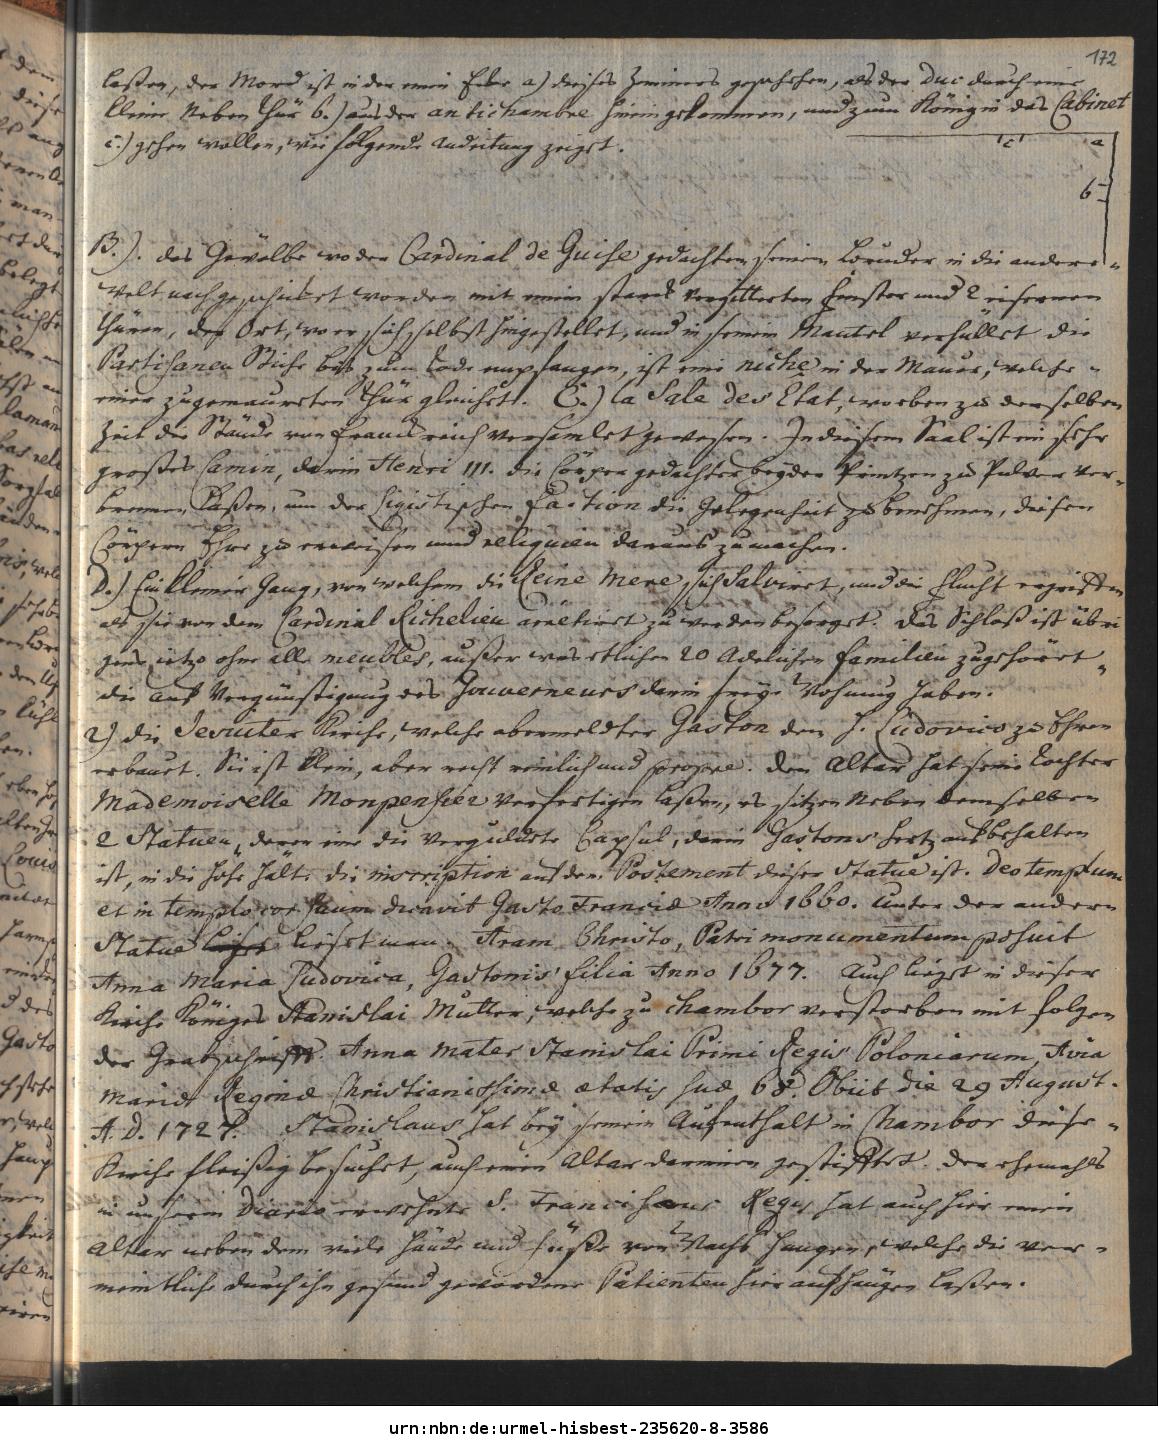 172
laßen, der Mord ist in der einen Ecke a) dieses Zimmers geschehen, als der Duc durch eine
kleine Neben Thür b.) aus der antichambre hinein gekommen, und zum König in das Cabinet
c.) gehen wollen, wie folgende Andeitung zeiget.
c
a
b
B.). das Gewölbe wo der Cardinal de Guise gedachten seinen Bruder in die andere
Welt nachgeschicket worden mit einem starck vergitterten Fenster und 2 eisernen
Thüren, der Ort, wo er sich selbst hingestellet, und in seinen Mantel verhüllet die
Partisanen Stiche bis zum Tode empfangen, ist eine niche in der Mauer, welche
einer zugemaureten Thür gleichet. C.) la Sale des Etat, worben zu derselben
Zeit die Stände von Franckreich versamlet gewesen. In diesem Saal ist ein sehr
großes Camin, darin Henri III. die Cörper gedachter beyder Printzen zu Pulver ver-
brennen laßen, um der Ligistischen Faction die Gelegenheit zu benehmen, diesen
Cörpern Ehre zu erweisen und reliquien daraus zu machen.
D.) Ein kleiner Gang, von welchem die Reine Mere sich Salviret, und die Flucht ergriffen
als sie von dem Cardinal Richelieu arretiret zu werden besorget. Das Schloß ist übri
gens jetzo ohne alle meubles, außer was etlichen 20 Adelichen Familien zugehöret
die aus Vergünstigung des Gouverneurs darin freye Wohnung haben.
2) die Jesuiter Kirche, welche obermeldter Gaston dem S. Ludovico zu Ehren
erbauet. Sie ist klein, aber recht reinlich und propre. Den Altar hat seine Tochter
Mademoiselle Monpensier verfertigen laßen, es sitzen neben demselben
2 Statuen, deren eine die vergüldete Capsul, darin Gastons Hertz aufbehalten
ist, in die Höhe hält. die inscription auf dem Postement dieser Statue ist. Deo templum
et in templo cor suum dicavit Gasto Franciæ Anno 1660. Unter der andern
Statue lieset man. Aram Christo, Patri monumentum posuit
Anna Maria Ludovica, Gastonis filia Anno 1677. Auch lieget in dieser
Kirche Königes Stanislai Mutter, welche zu Chambor verstorben mit folgen
der Grabschrifft. Anna Mater Stanislai Primi Regis Poloniarum, Avia
Mariæ Reginæ Christianissimæ ætatis suæ 68. Obiit die 29 August.
A. D. 1727. Stanislaus hat bey seinem Aufenthalt in Chambor diese
Kirche fleißig besuchet, auch einen Altar darinnen gestifftet. Der ehemahls
in unserm Diario erwehnte S. Franciscus Regis hat auch hier einen
Altar neben dem viele Hände und Füße von Wachs hangen, welche die ver-
meintliche durch ihn gesund gewordene Patienten hier aufhängen laßen.
urn:nbn:de:urmel-hisbest-235620-8-3586